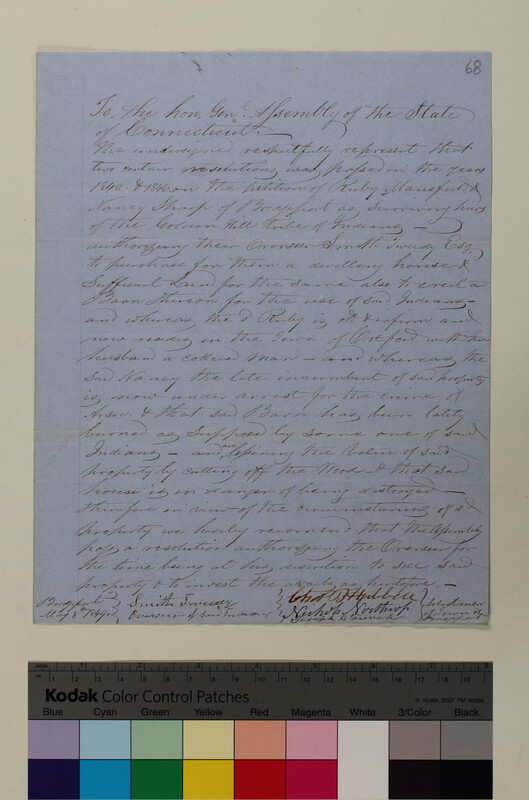 68
To, the hon. Genl. Assembly of the State
of Connecticut.
The undersigned respectfully represent that
two certain resolutions was passed in the years
1840. & 1846, on the petition of Ruby Mansfield &
Nancy Sharp of Bridgeport as surviving heirs
of the Golden Hill tribe of Indians —
authorizing their Overseer Smith Tweedy Esq
to purchase for them a dwelling house &
Sufficient Land for the same also to erect a
Barn thereon for the use of said Indians —
and whereas the sd Ruby is old & infirm and
now resides in the Town of Oxford with her
husband a colored man — and whereas the
said Nancy the late incumbent of said property
is now under arrest for the crime of
Arson & that said Barn has been lately
burned as supposed by some one of said
Indians — and are lessening the value of said
property by cutting off the Wood & that said
house is in danger of being destroyed —
therefore in view of the circumstances of sd
property we hereby recommend that the Assembly
pass a resolution authorizing the Overseer for
the time being at his discretion to sell said
property & to invest the avails as heretofore. —
Bridgeport
May 8 1849
Smith Tweedy
Overseer of said Indians
Northrop
Selectmen
Town of
Bridgeport
mm
1 2 3 4 5 6 7 8 9 10 11 12 13 14 15 16 17 18 19
Kodak Color Control Patches
© Kodak, 2007, TM: Kodak
Blue Cyan Green Yellow Red Magenta White 3/Color Black